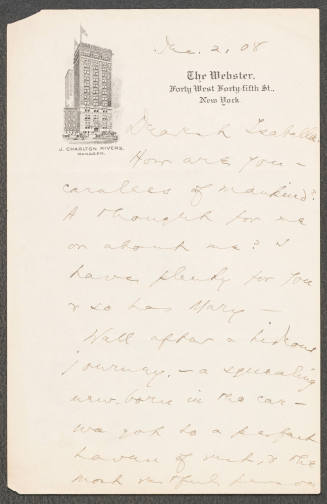 Dec. 2, 08
The Webster.
Forty West Forty-fifth St.,
New York
J. CHARLTON RIVERS,
MANAGER.
Dearest Isabella
How are you –
careless of mankind?
A thought for me
or about me? I
have plenty for you
& so has Mary –
Well after a hideous
journey, – a squealing
new-born in the car –
we got to a perfect
haven of rest, & the
most restful